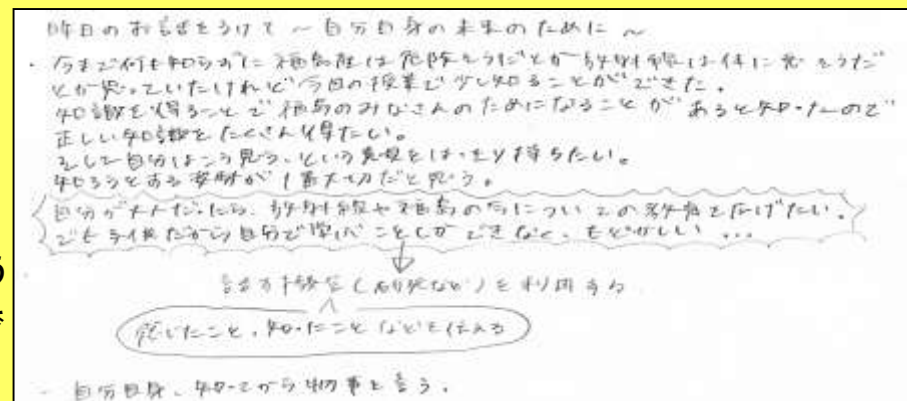 昨日のお話をうけて ～自分自身の未来のために～
・今まで何も知らずに福島産は危険そうだとか放射線は体に悪そうだ
とか思っていたけれど今回の授業で少し知ることができた。
知識を得ることで福島のみなさんのためになることがあると知ったので
正しい知識をたくさん得たい。
そして自分はこう思う、という意見をはっきり持ちたい。
知ろうとする姿勢が1番大切だと思う。
自分が大人だったら、放射線や福島の今についての教育を広げたい。
でも子供だから自分で学ぶことしかできなく、もどかしい...
話す機会（など）を利用する
感じたこと、知ったことなどを伝える
- 自分自身、知ってから物事を言う。